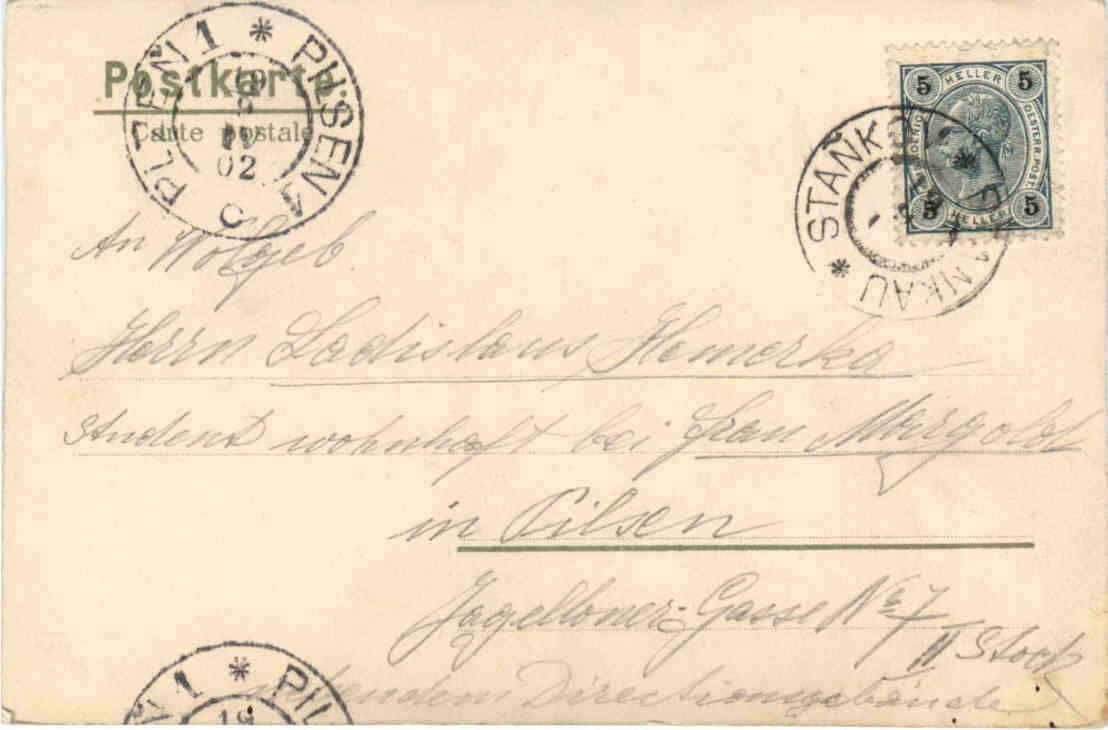 Postkarte.
Carte postale
PLZEŇ 1 * PILSEN 1
02
5 HELLER 5
OESTERR. POST
5 HELLER 5
STAŇKOV * STANKAU *
An Wolgeb
Herrn Ladislaus Hemerka
Student wohnhaft bei Frau Margold
in Pilsen
Jagelloner-Gasse No 7
II Stock
Directionsgebäude
1 * PIL
19